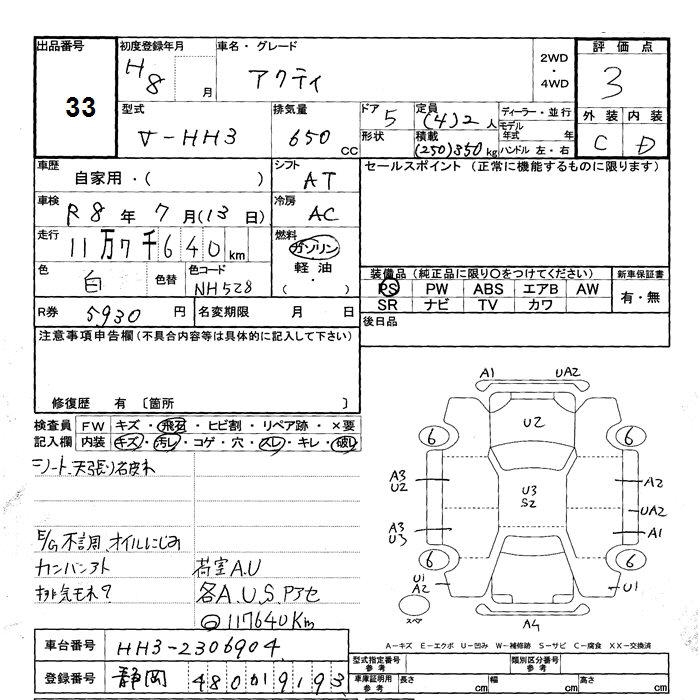 出品番号
33
初度登録年月
H8 月
車名・グレード
アクティ
2WD
・
4WD
評価点
3
外装 内装
C D
型式
V-HH3
排気量
650 CC
ドア 5
形状
定員 (4)2 人
積載 (250)350 kg
ディーラー・並行
モデル年式 年
ハンドル 左・右
車歴
自家用・( )
シフト
AT
車検
R8年 7月(13日)
冷房
AC
走行
11万7千640 km
燃料
ガソリン
軽油
・
( )
色
白
色替
色コード
NH528
R券 5,930 円
名変期限 月 日
セールスポイント(正常に機能するものに限ります)
装備品(純正品に限り〇をつけてください)
PS PW ABS エアB AW
SR ナビ TV カワ
新車保証書
有・無
後日品
注意事項申告欄(不具合内容等は具体的に記入して下さい)
修復歴 有 〔箇所 〕
検査員 FW キズ・飛石・ヒビ割・リペア跡・×要
記入欄 内装 キズ・汚レ・コゲ・穴・スレ・キレ・破レ
シート、天張り名皮れ
E/G不調、オイルにじみ
カンバンアト
荷室A.U
排気モレ?
各A.U.S.Pアセ
◎117640Km
A1 UA2
U2
6 6
A3
U2
U3
S2
A2
UA2
A3
U3
A1
6 6
U1
A2
U1
スペア
A4
A-キズ E-エクボ U-凹み W-補修跡 S-サビ C-腐食 XX-交換済
車台番号 HH3-2306904
登録番号 静岡 480か9193
型式指定番号
参考
類別区分番号
参考
車庫証明用
参考
長さ cm 幅 cm 高さ cm